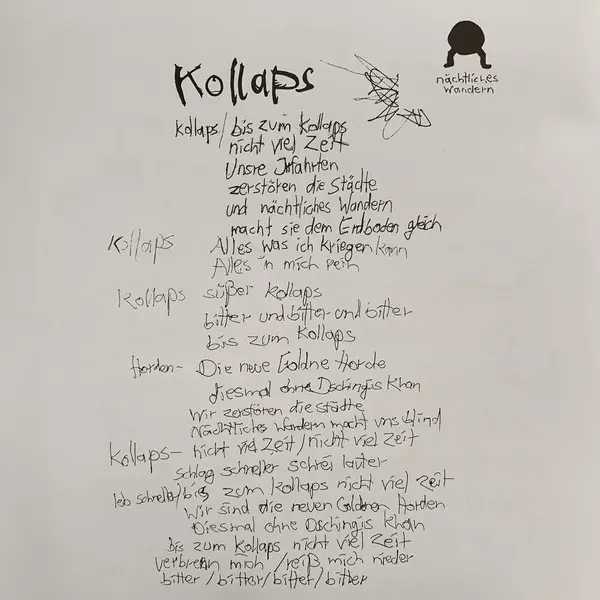 Kollaps
nächtliches
Wandern
Kollaps/bis zum Kollaps
nicht viel Zeit
Unsre Irrfahrten
zerstören die Städte
und nächtliches Wandern
macht sie dem Erdboden gleich
Kollaps Alles was ich kriegen kann
Alles in mich rein
Kollaps süßer Kollaps
bitter und bitter und bitter
bis zum Kollaps
Horden- Die neue Goldne Horde
diesmal ohne Dschingis Khan
Wir zerstören die Städte
Nächtliches Wandern macht uns blind
Kollaps- nicht viel Zeit/nicht viel Zeit
schlag schneller schrei lauter
leb schneller/bis zum Kollaps nicht viel Zeit
Wir sind die neuen Goldnen Horden
Diesmal ohne Dschingis Khan
Bis zum Kollaps nicht viel Zeit
verbrenn mich /reiß mich nieder
bitter/bitter/bitter/bitter